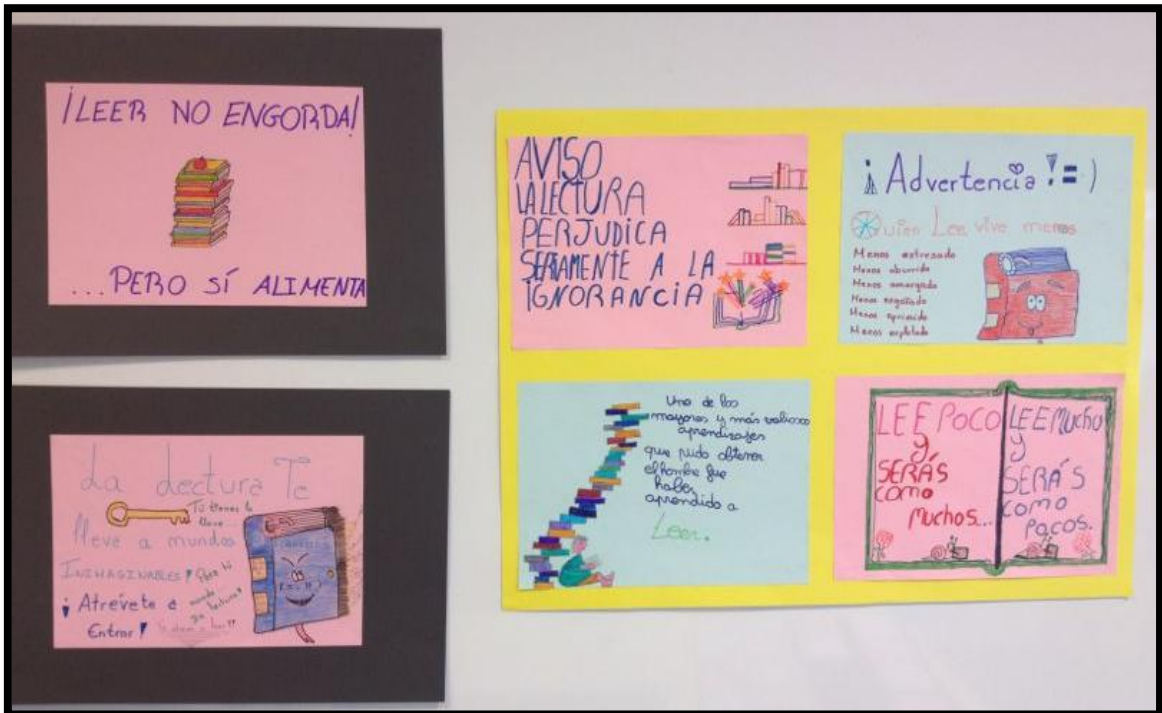 ¡LEER NO ENGORDA!
...PERO SÍ ALIMENTA
La Lectura Te
Tú tienes la
llave...
lleve a mundos
INIMAGINABLES!
¡Atrévete a
Entrar!
AVISO
LA LECTURA
PERJUDICA
SERIAMENTE A LA
IGNORANCIA
¡Advertencia!=)
Quien Lee vive menos
Menos estresado
Menos aburrido
Menos amargado
Menos engañado
Menos oprimido
Menos explotado
Uno de los
mayores y más valiosos
aprendizajes
que pudo obtener
el hombre fue
haber
aprendido a
Leer.
LEE POCO
y
SERÁS
como
Muchos...
LEE Mucho
y
SERÁS
como
pocos.